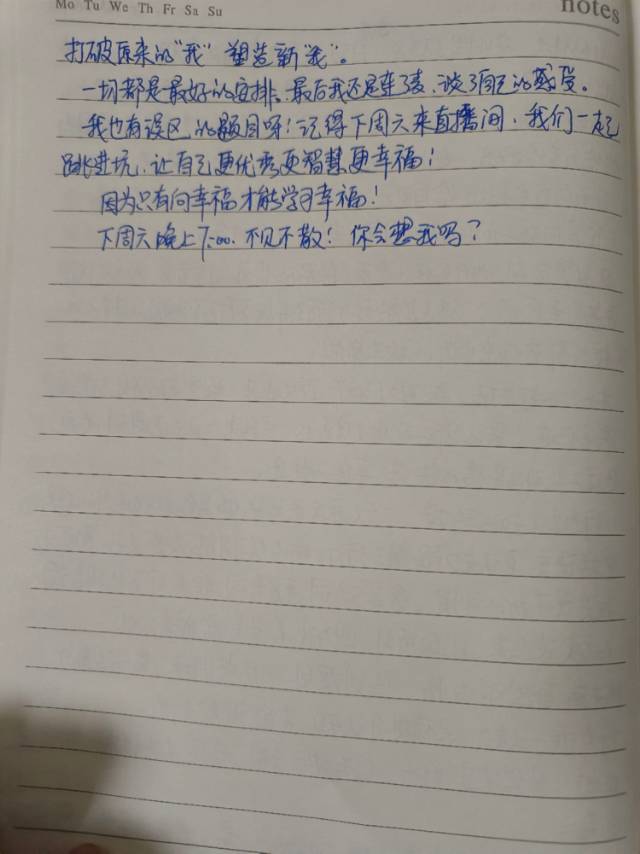 Mo Tu We Th Fr Sa Su
notes
打破原来的"我" 塑造新"我"。
一切都是最好的安排、最后我还是连了麦、谈了自己的感受。
我也有误区的题目呀！记得下周六来直播间、我们一起
跳进坑、让自己更优秀更智慧更幸福！
因为只有向幸福才能学习幸福！
下周六晚上7:00. 不见不散！你会想我吗？